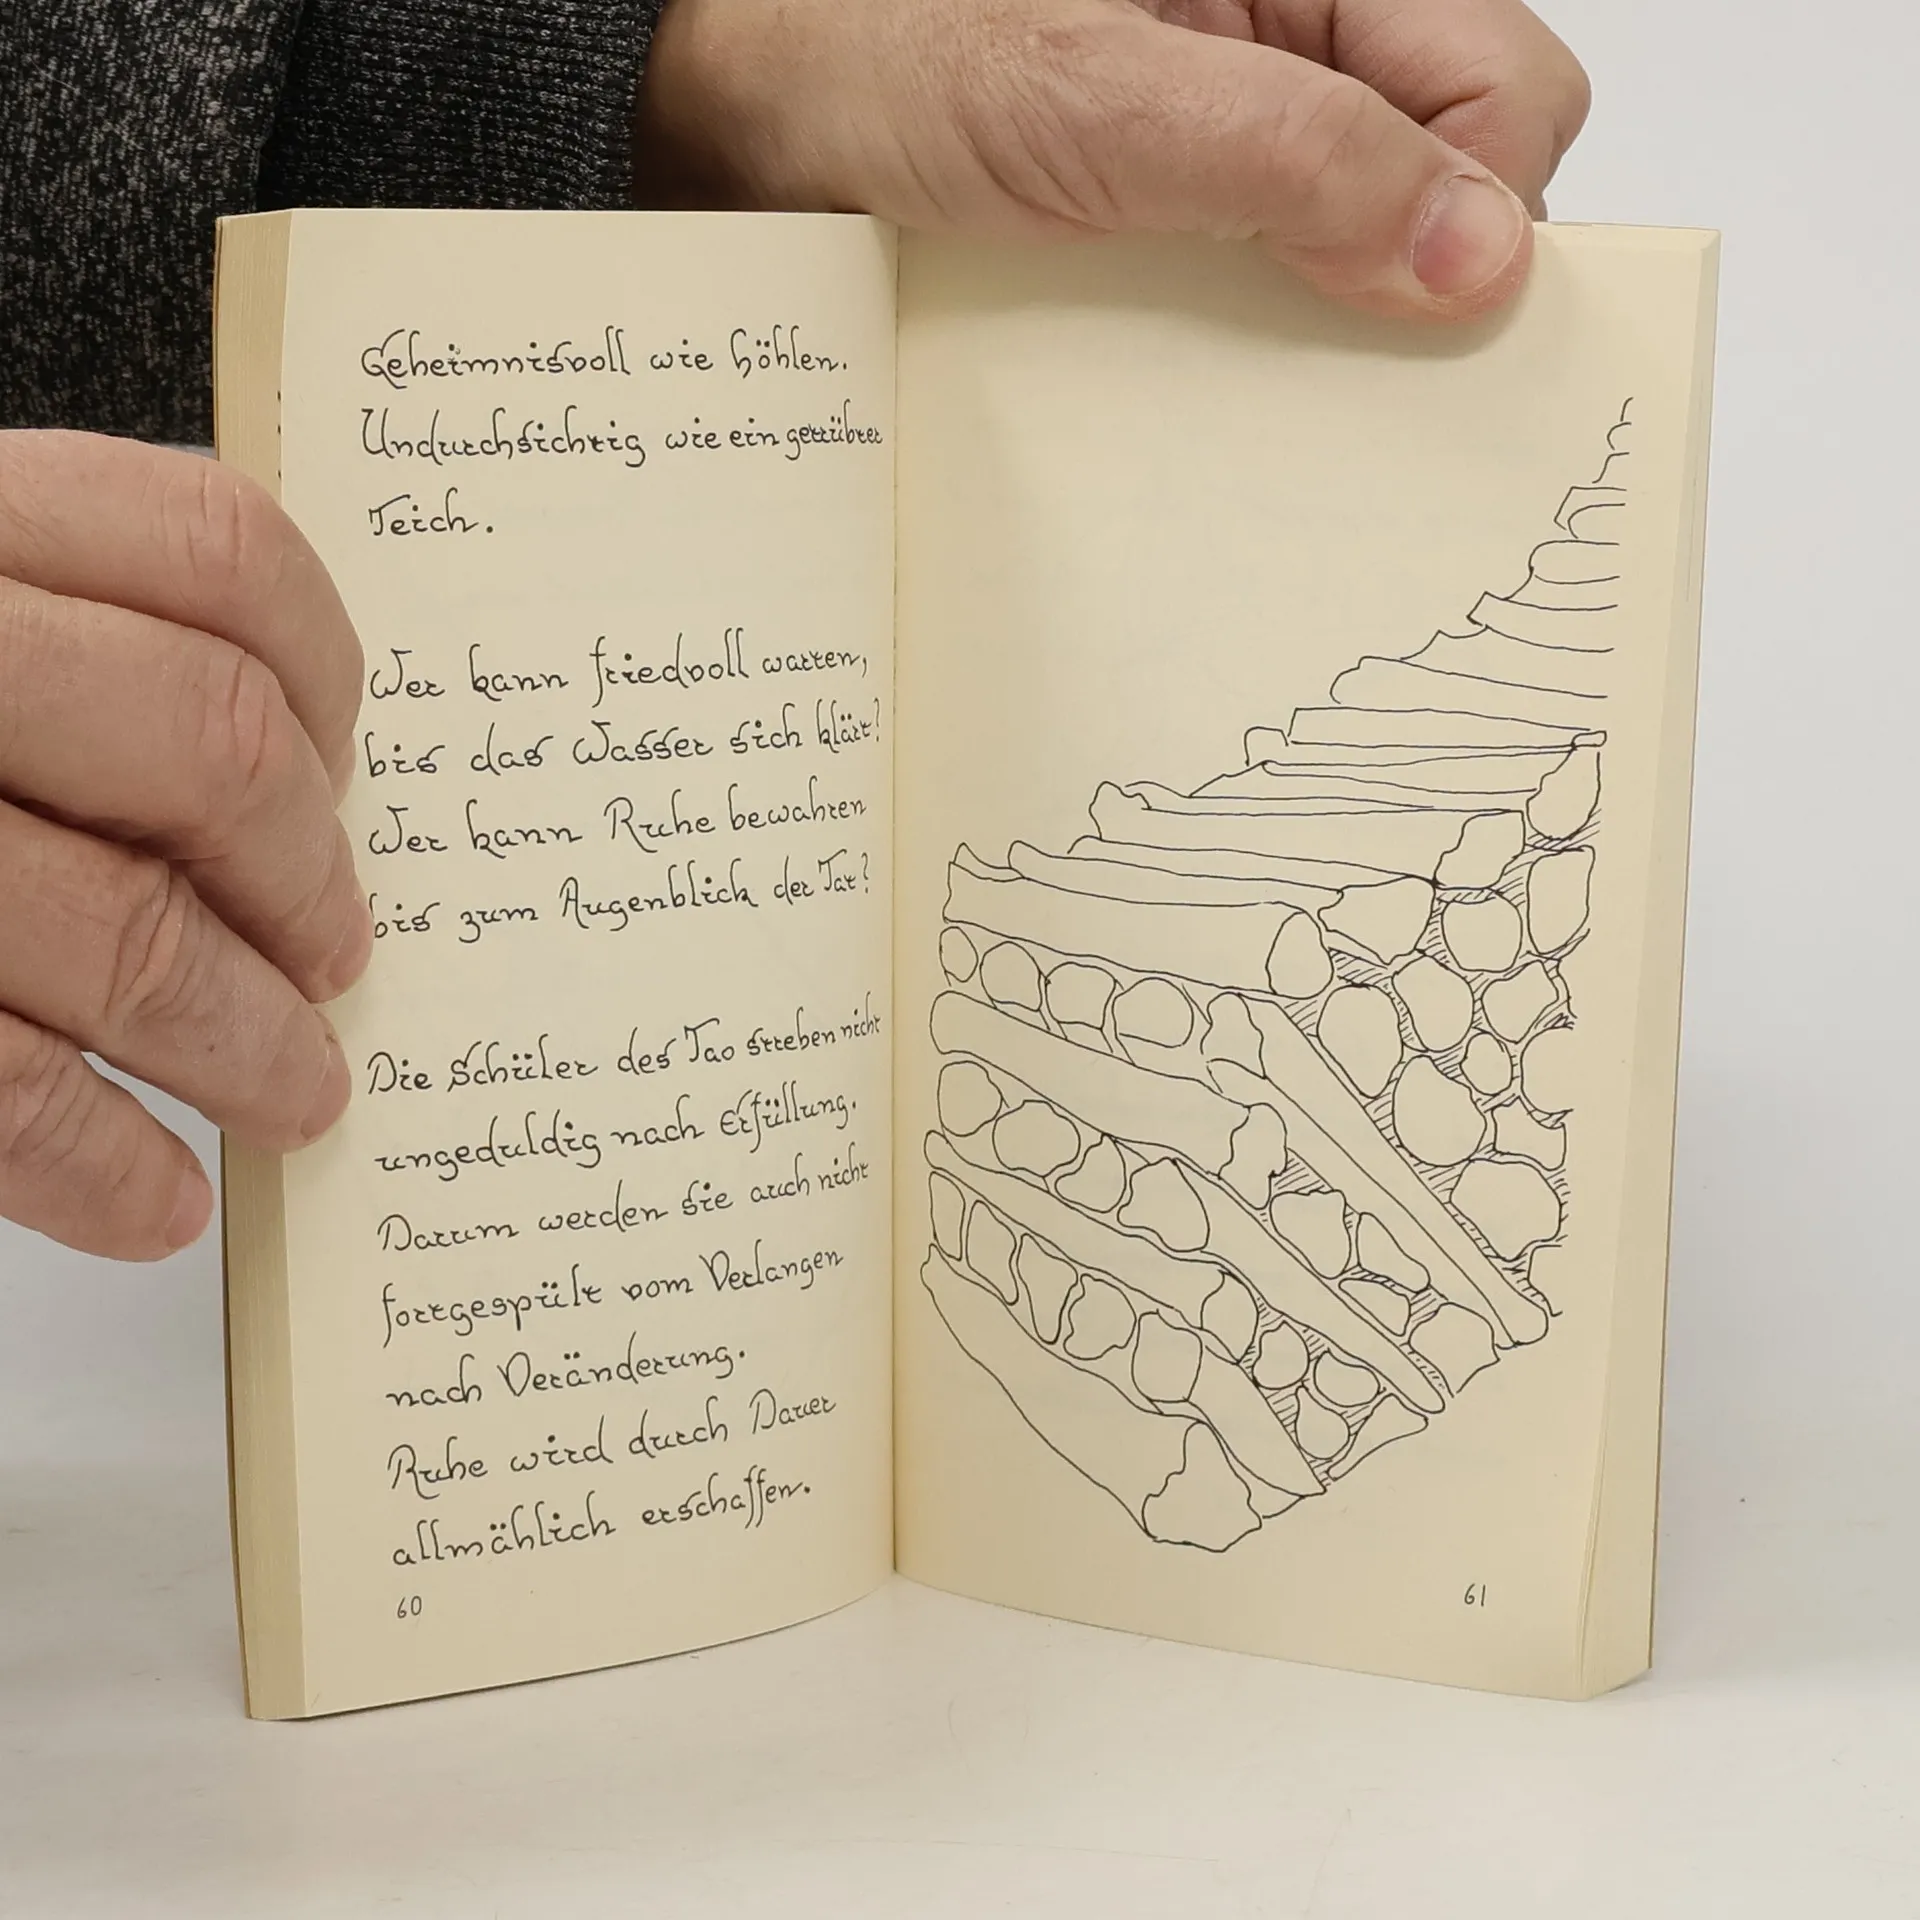 Geheimnisvoll wie Höhlen.
Undurchsichtig wie ein getrübter
Teich.
Wer kann friedvoll warten,
bis das Wasser sich klärt?
Wer kann Ruhe bewahren
bis zum Augenblick der Tat?
Die Schüler des Tao streben nicht
ungeduldig nach Erfüllung.
Darum werden sie auch nicht
fortgespült vom Verlangen
nach Veränderung.
Ruhe wird durch Dauer
allmählich erschaffen.
60
61